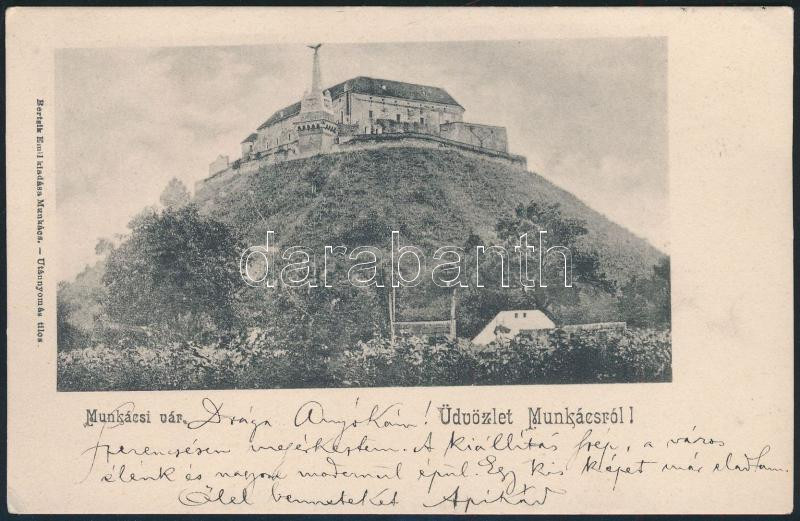 Bertsik Emil kiadása Munkács. — Utánnyomás tilos.
darabanth
Munkácsi vár. Drága Anyókám! Üdvözlet Munkácsról!
Szerencsésen megérkeztem. A kiállítás szép, a város
élénk és nagyon modernül épül. Egy kis képet már eladtam.
Ölel benneteket Apikád